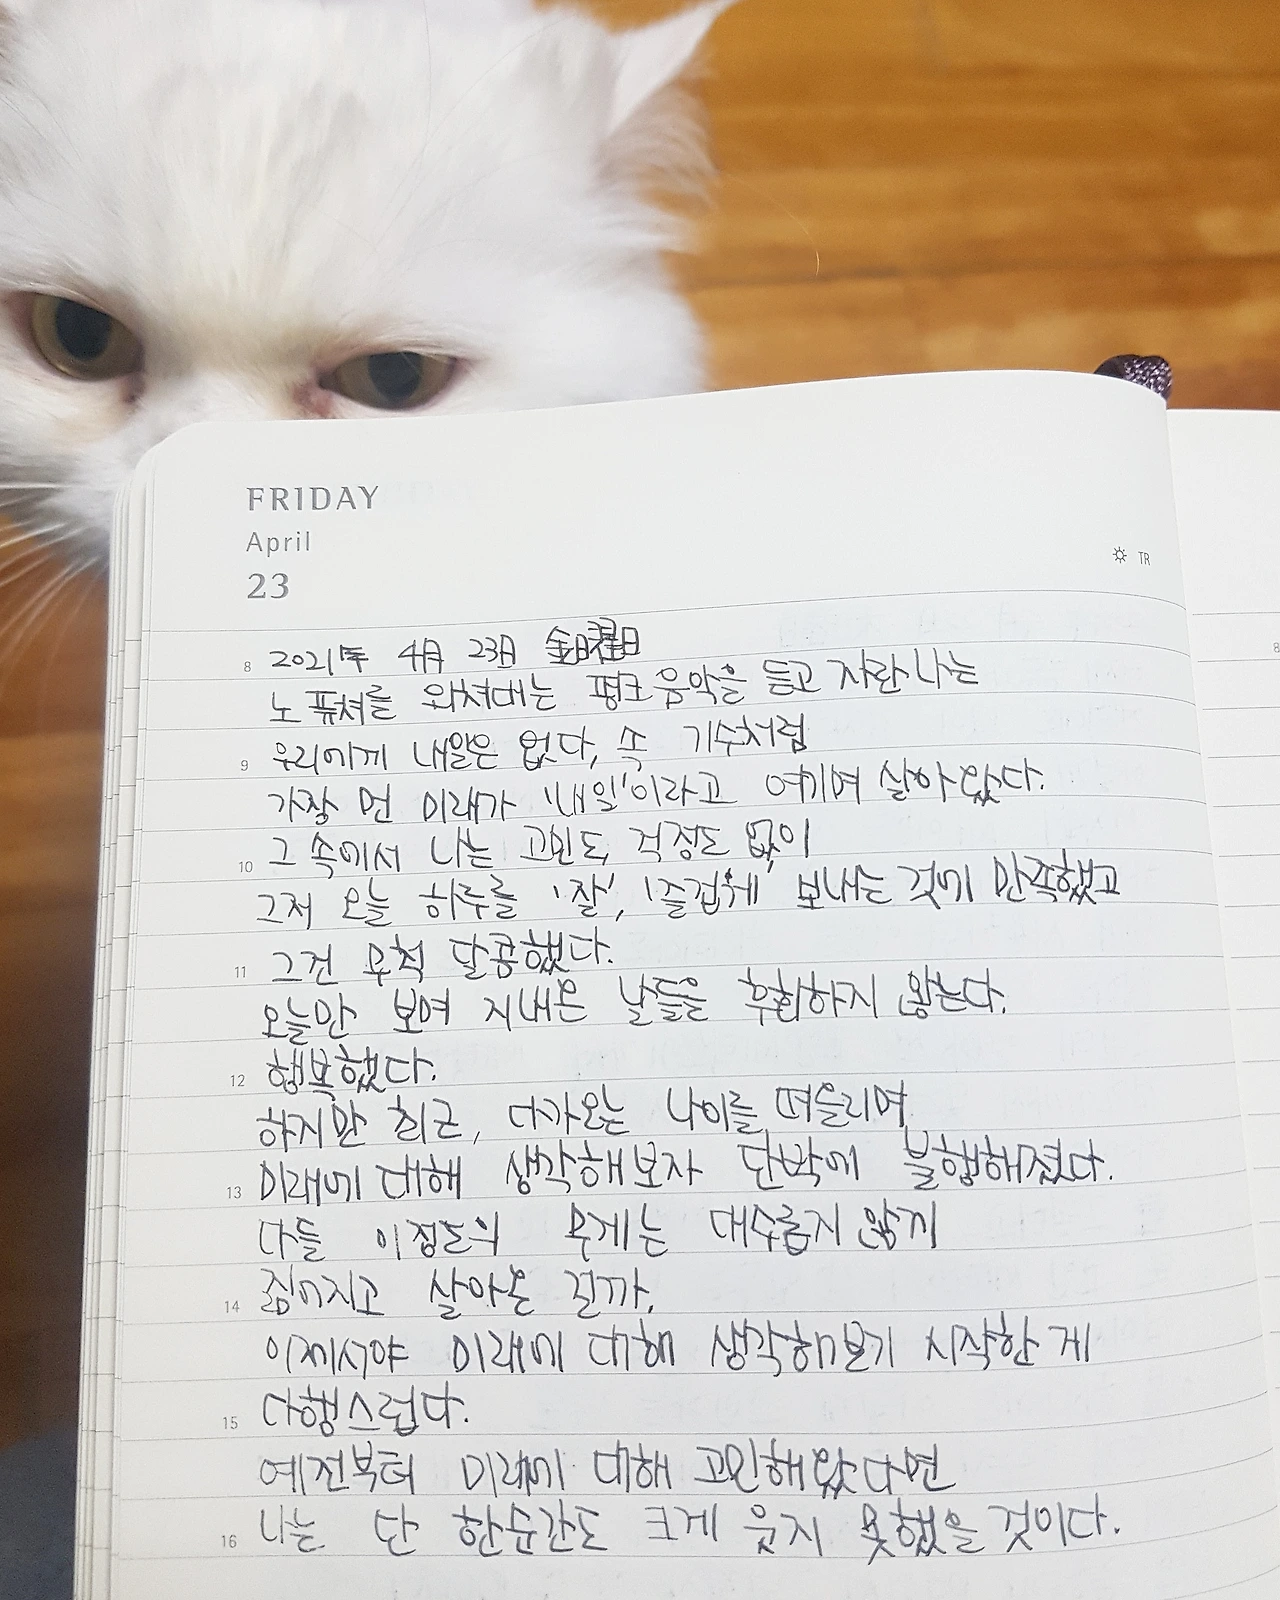 FRIDAY
April
23
TR
8 2021年 4月 23日 金曜日
노 퓨쳐를 외쳐대는 펑크음악을 듣고 자란 나는
9 우리에게 내일은 없다, 속 가수처럼
가장 먼 미래가 '내일'이라고 여기며 살아왔다.
10 그 속에서 나는 고민도, 걱정도 없이
그저 오늘 하루를 '잘', '즐겁게' 보내는 것에 만족했고
11 그건 무척 달콤했다.
오늘만 보며 지내온 날들을 후회하지 않는다.
12 행복했다.
하지만 최근, 다가오는 나이를 떠올리며
13 미래에 대해 생각해보자 단박에 불행해졌다.
다들 이정도의 무게는 대수롭지 않게
14 짊어지고 살아온 걸까.
이제서야 미래에 대해 생각해보기 시작한 게
15 다행스럽다.
예전부터 미래에 대해 고민해왔다면
16 나는 단 한순간도 크게 웃지 못했을 것이다.
8